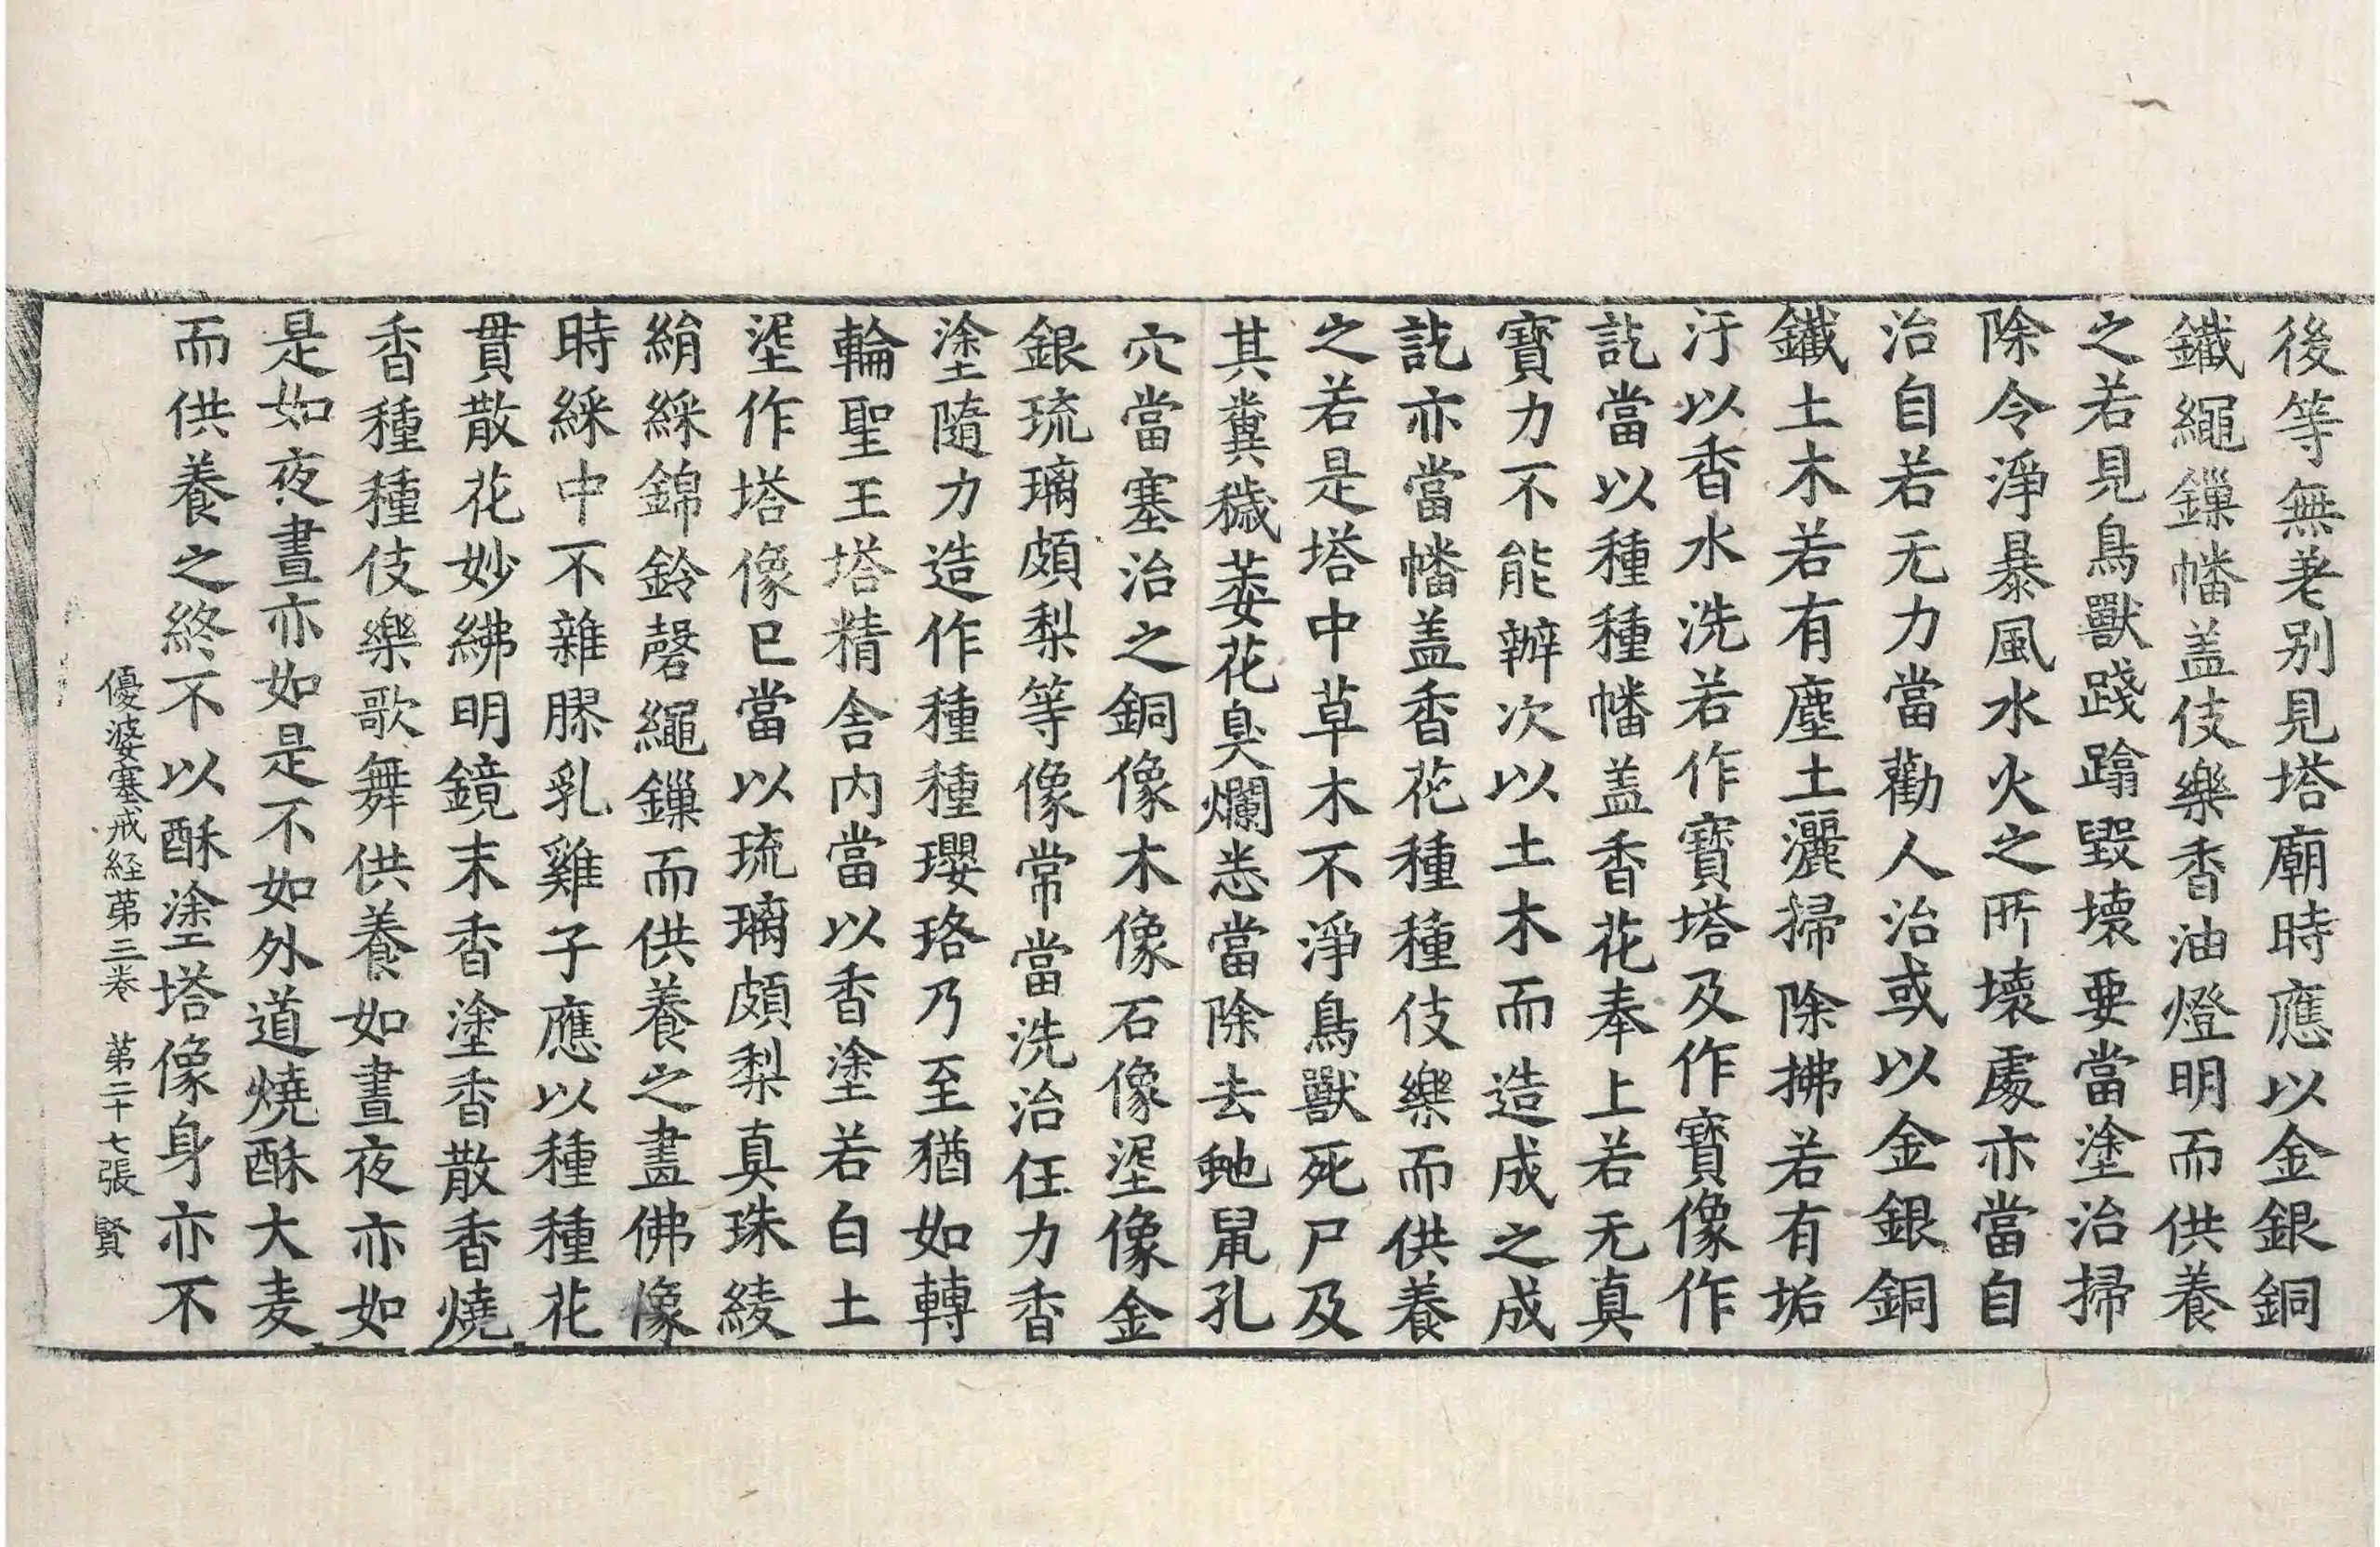 後等無差别見塔廟時應以金銀銅
鐵繩鏁幡盖伎樂香油燈明而供養
之若見鳥獸踐蹋毀壞要當塗治掃
除令淨暴風水火之所壞處亦當自
治自若无力當勸人治或以金銀銅
鐵土木若有塵土灑掃除拂若有垢
汙以香水洗若作寶塔及作寶像作
訖當以種種幡盖香花奉上若无真
寶力不能辦次以土木而造成之成
訖亦當幡盖香花種種伎樂而供養
之若是塔中草木不淨鳥獸死尸及
其糞穢萎花臭爛悉當除去虵鼠孔
穴當塞治之銅像木像石像埿像金
銀琉璃頗梨等像常當洗治任力香
塗隨力造作種種瓔珞乃至猶如轉
輪聖王塔精舍内當以香塗若白土
埿作塔像已當以琉璃頗梨真珠綾
絹綵錦鈴磬繩鏁而供養之畫佛像
時綵中不雜膠乳雞子應以種種花
貫散花妙紼明鏡末香塗香散香燒
香種種伎樂歌舞供養如晝夜亦如
是如夜晝亦如是不如外道燒酥大麦
而供養之終不以酥塗塔像身亦不
優婆塞戒経苐三卷 第二十七張 賢